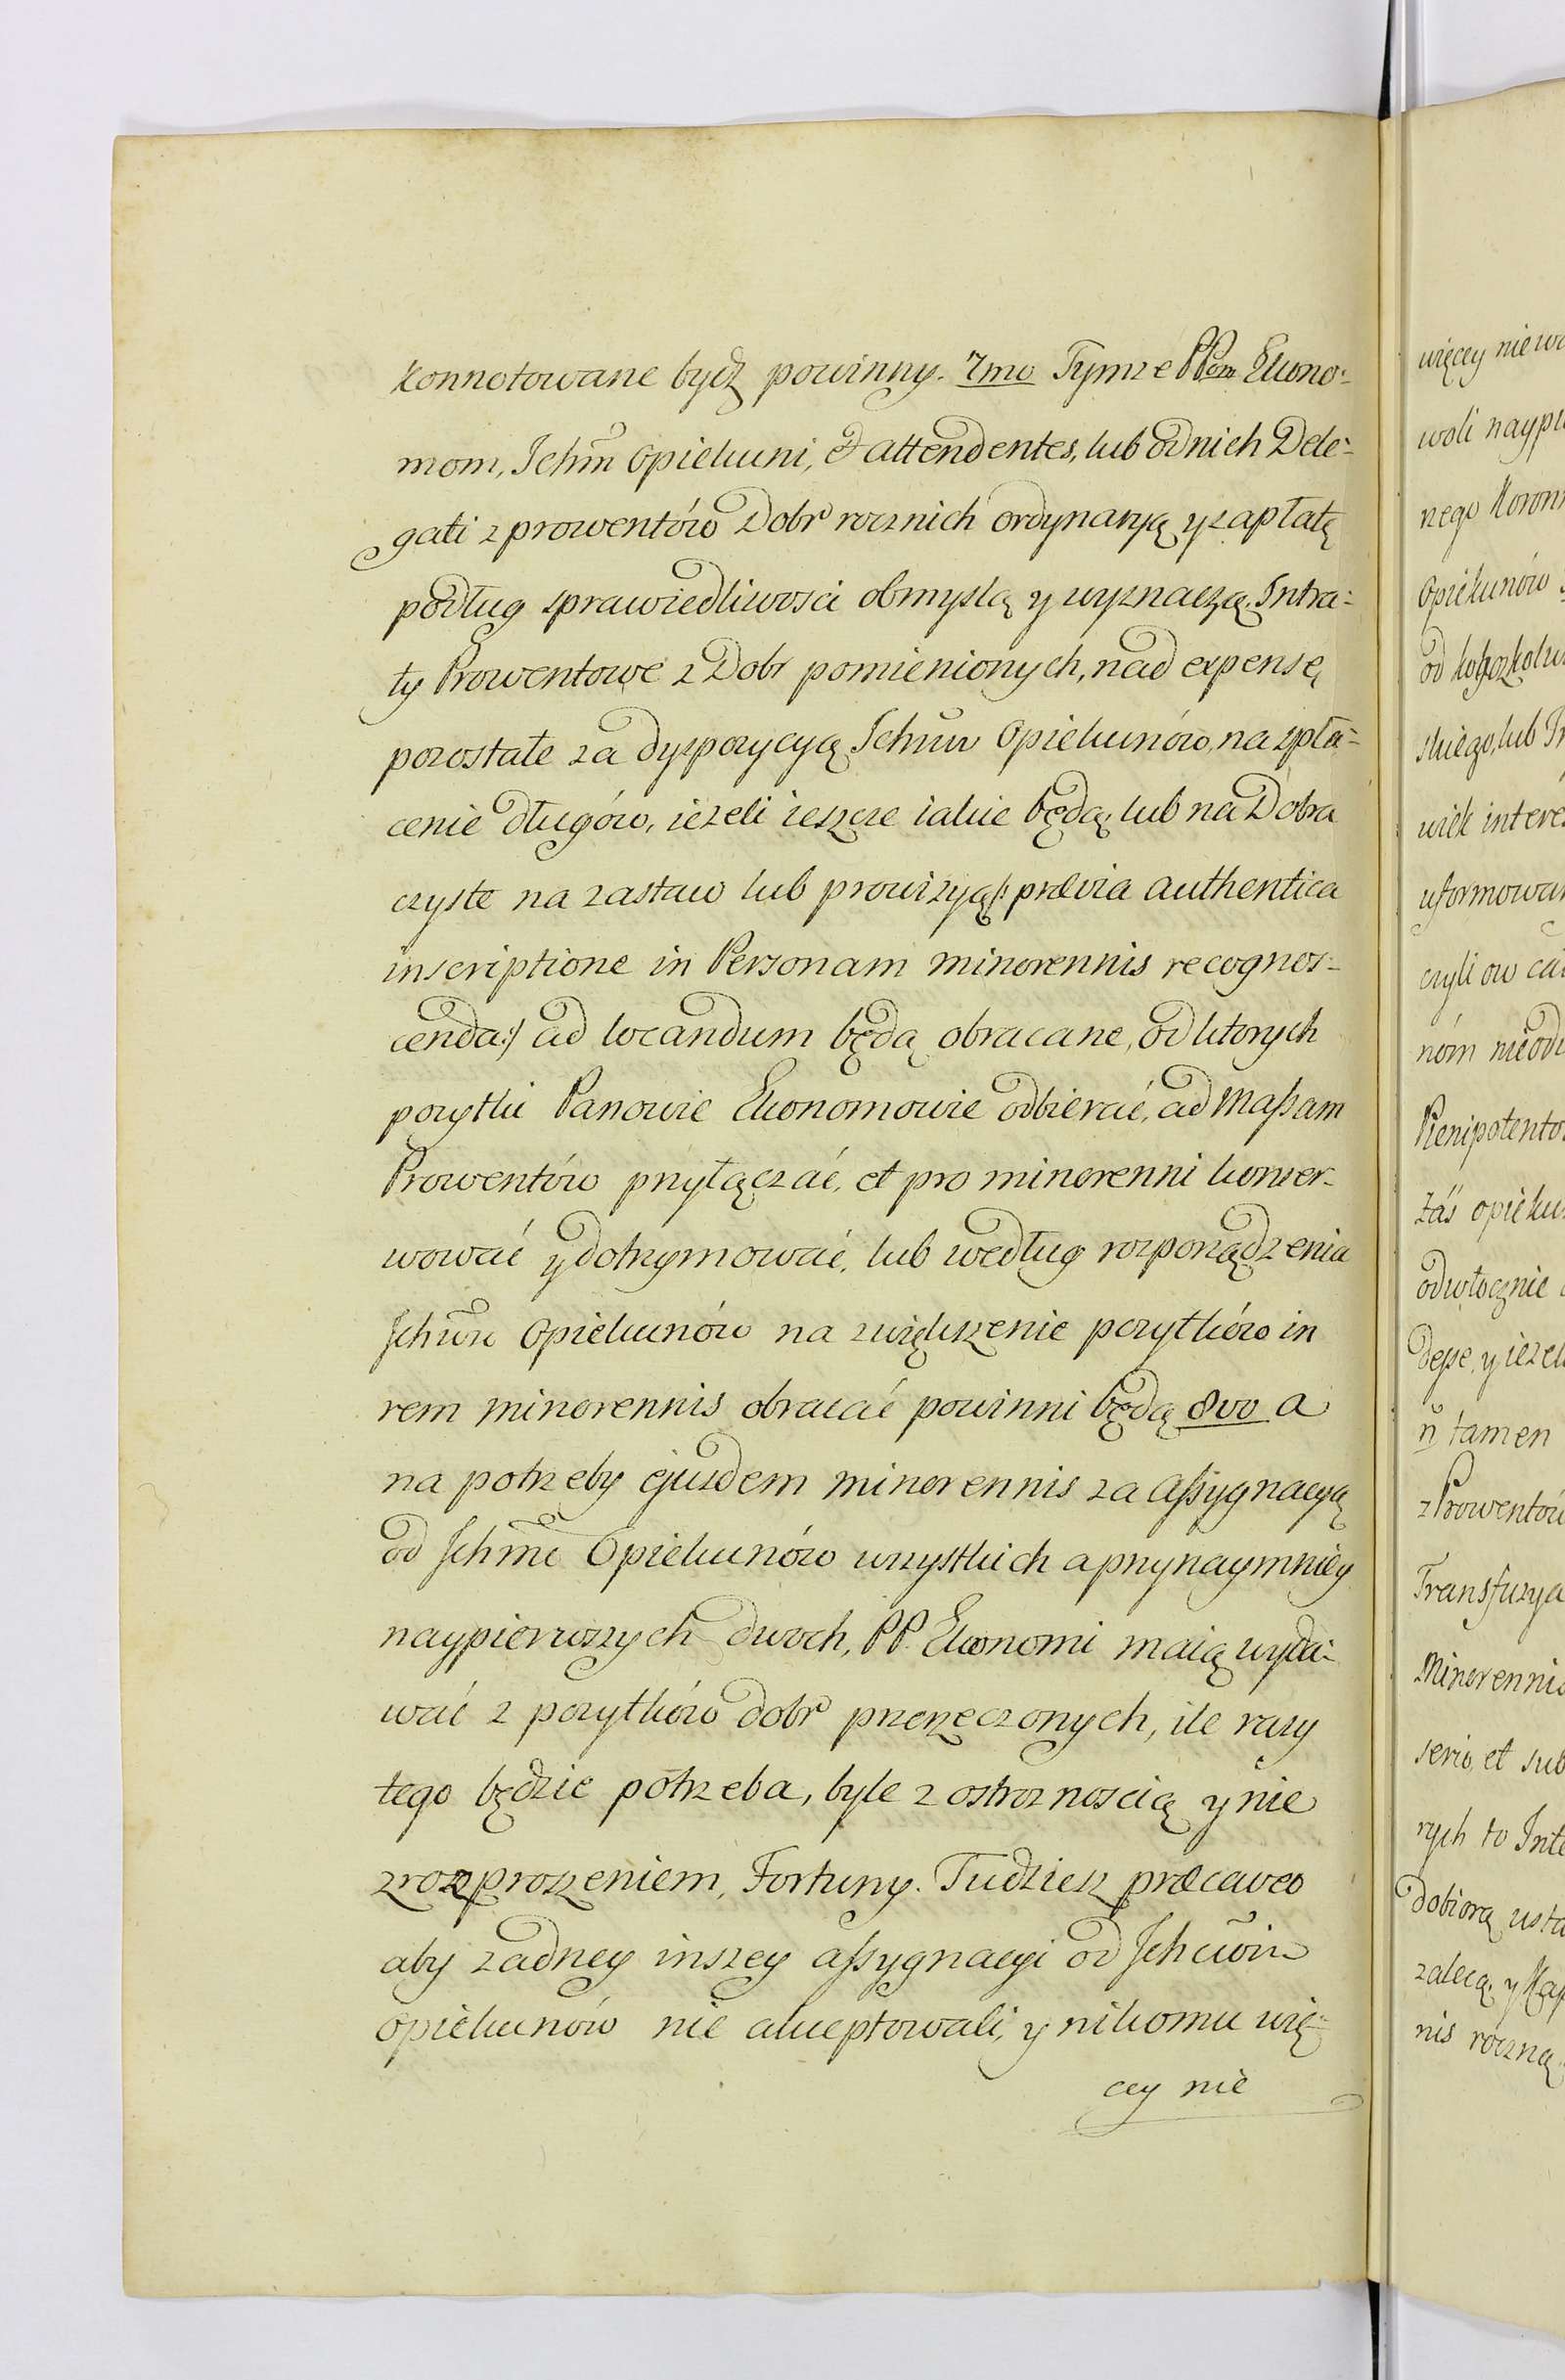 konnotowane bydź powinny. 7mo Tymże PPom Ekono:
mom, Ichm Opiekuni, et attendentes, lub od nich Dele:
gati z prowentów Dobr rocznich ordynaryą y zapłatę
podług sprawiedliwosci obmyslą y wyznaczą. Intra:
ty Prowentowe z Dobr pomienionych, nad expensę
pozostałe za dyspozycyą Ichmw Opiekunów, na zpła:
cenie długów, ieżeli ieszcze iakie będą, lub na Dobra
czyste na zastaw lub prowizyą /: prævia authentica
inscriptione in Personam minorennis recognos:
cenda :/ ad locandum będą obracane, od ktorych
pozytki Panowie Ekonomowie odbierać, ad Massam
Prowentów przyłączać, et pro minorenni konser:
wować y dotrzymować, lub według rozporządzenia
Ichmw Opiekunów na zwiększenie pozytków in
rem minorennis obracać powinni będą 8vo a
na potrzeby ejusdem minorennis za assygnacyą
od Ichm Opiekunów wszystkich a przynaymniey
naypierwszych dwoch, PP. Ekonomi maią wyda:
wać z pozytków dobr przerzeczonych, ile razy
tego będzie potrzeba, byle z ostroznoscią y nie
z rozproszeniem, Fortuny. Tudziesz præcaveo
aby zadney inszey assygnacyi od Ichmw
opiekunów nie akceptowali, y nikomu wię:
cey nie
więcey nie
woli
nego
Opiekunów
od
skiego, lub
wiek
czyli ow
nóm
zaś
odwłocznie
depe, y
ñ tamen
z Prowentów
Transfuzya
Minorennis
serio, et sub
rych to
dobiorą
zalecą, y
nis roczną